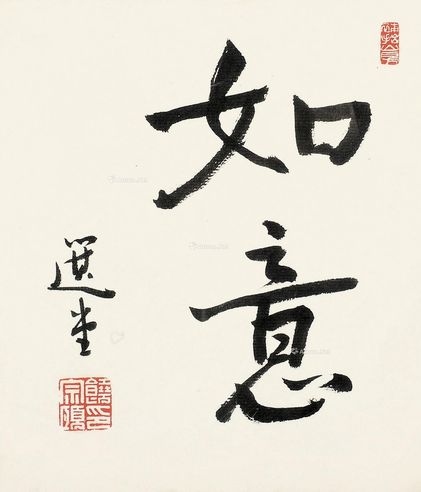 如意
選堂
饒宗頤印